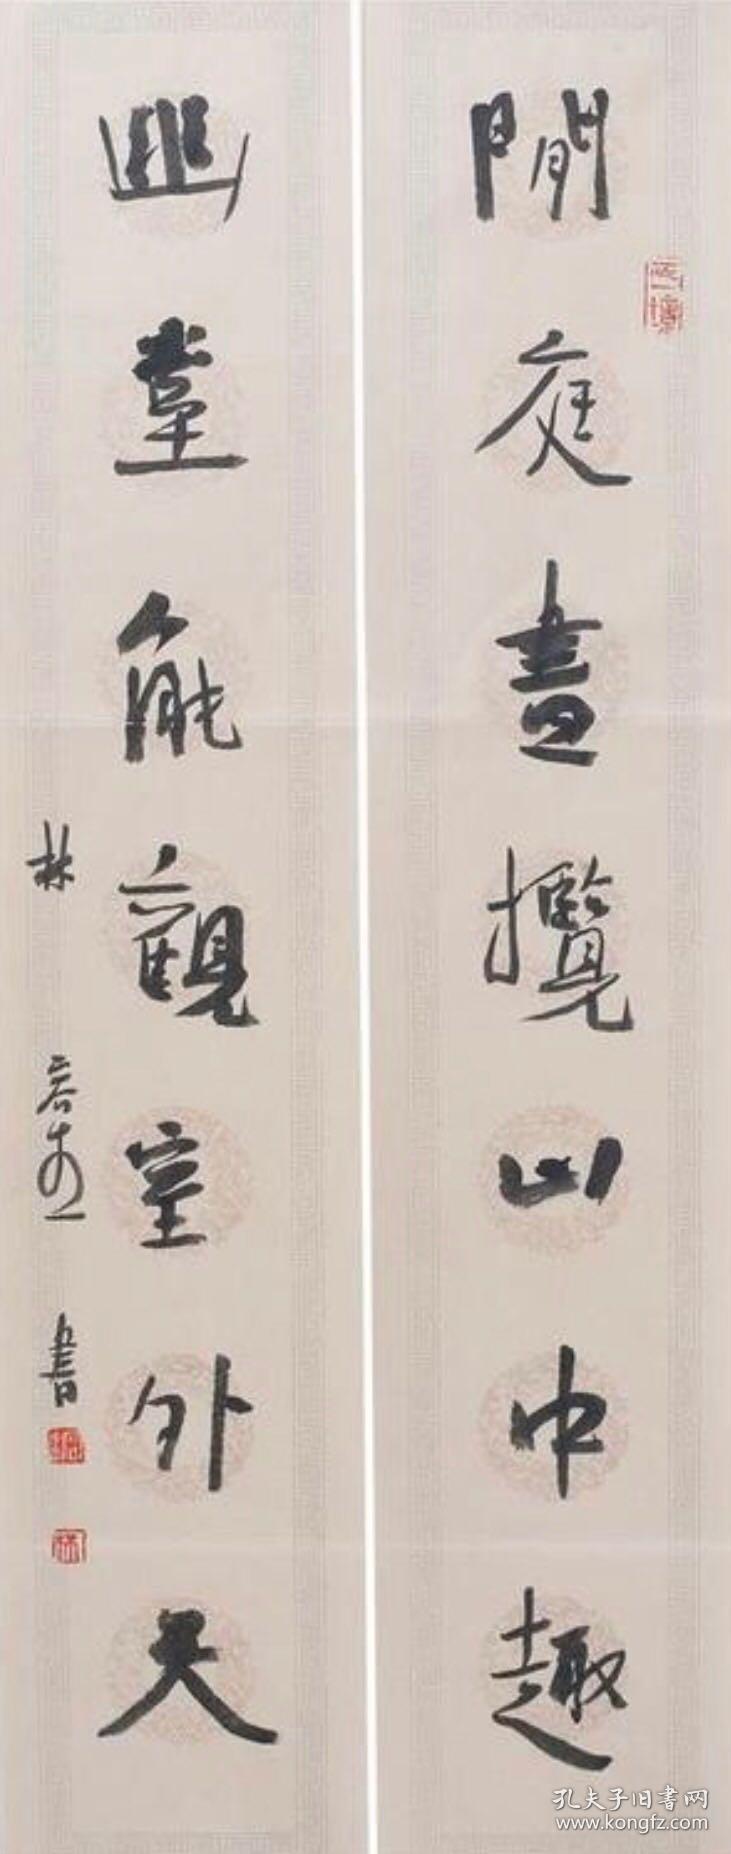 閒庭盡攬山中趣
幽堂能觀室外天
林容生書
孔夫子旧書网
www.kongfz.com